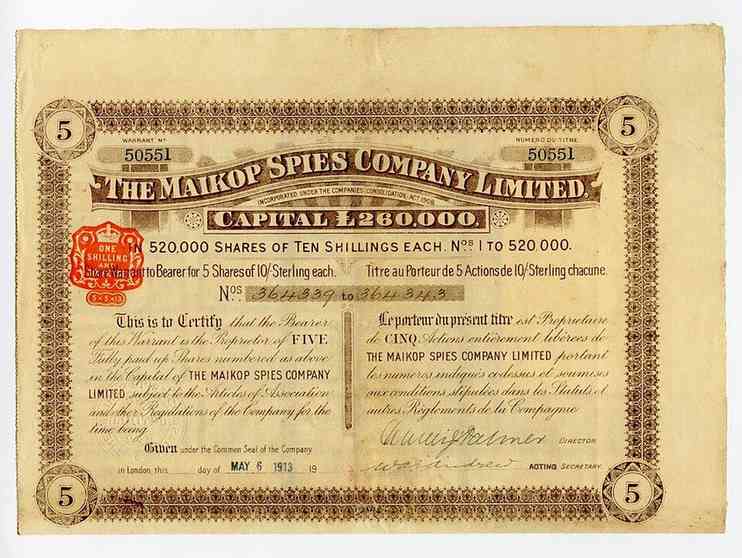 5 5
WARRANT Nº NUMERO DU TITRE
50551 50551
THE MAIKOP SPIES COMPANY LIMITED.
INCORPORATED UNDER THE COMPANIES (CONSOLIDATION) ACT 1908.
CAPITAL £260,000.
IN 520,000 SHARES OF TEN SHILLINGS EACH. Nºs 1 TO 520,000.
ONE
SHILLING
AND
Share Warrant to Bearer for 5 Shares of 10/- Sterling each. Titre au Porteur de 5 Actions de 10/- Sterling chacune.
5·5·13
Nºs 364339 to 364343
This is to Certify that the Bearer
of this Warrant is the Proprietor of FIVE
Fully paid up Shares numbered as above
in the Capital of THE MAIKOP SPIES COMPANY
LIMITED subject to the Articles of Association
and other Regulations of the Company for the
time being.
Le porteur du présent titre est Propriétaire
de CINQ Actions entièrement libérées de
THE MAIKOP SPIES COMPANY LIMITED portant
les numéros indiqués ci-dessus et soumises
aux conditions stipulées dans les Statuts et
autres Règlements de la Compagnie
Given under the Common Seal of the Company
in London, this day of MAY 6 1913 19
DIRECTOR
ACTING SECRETARY.
5 5